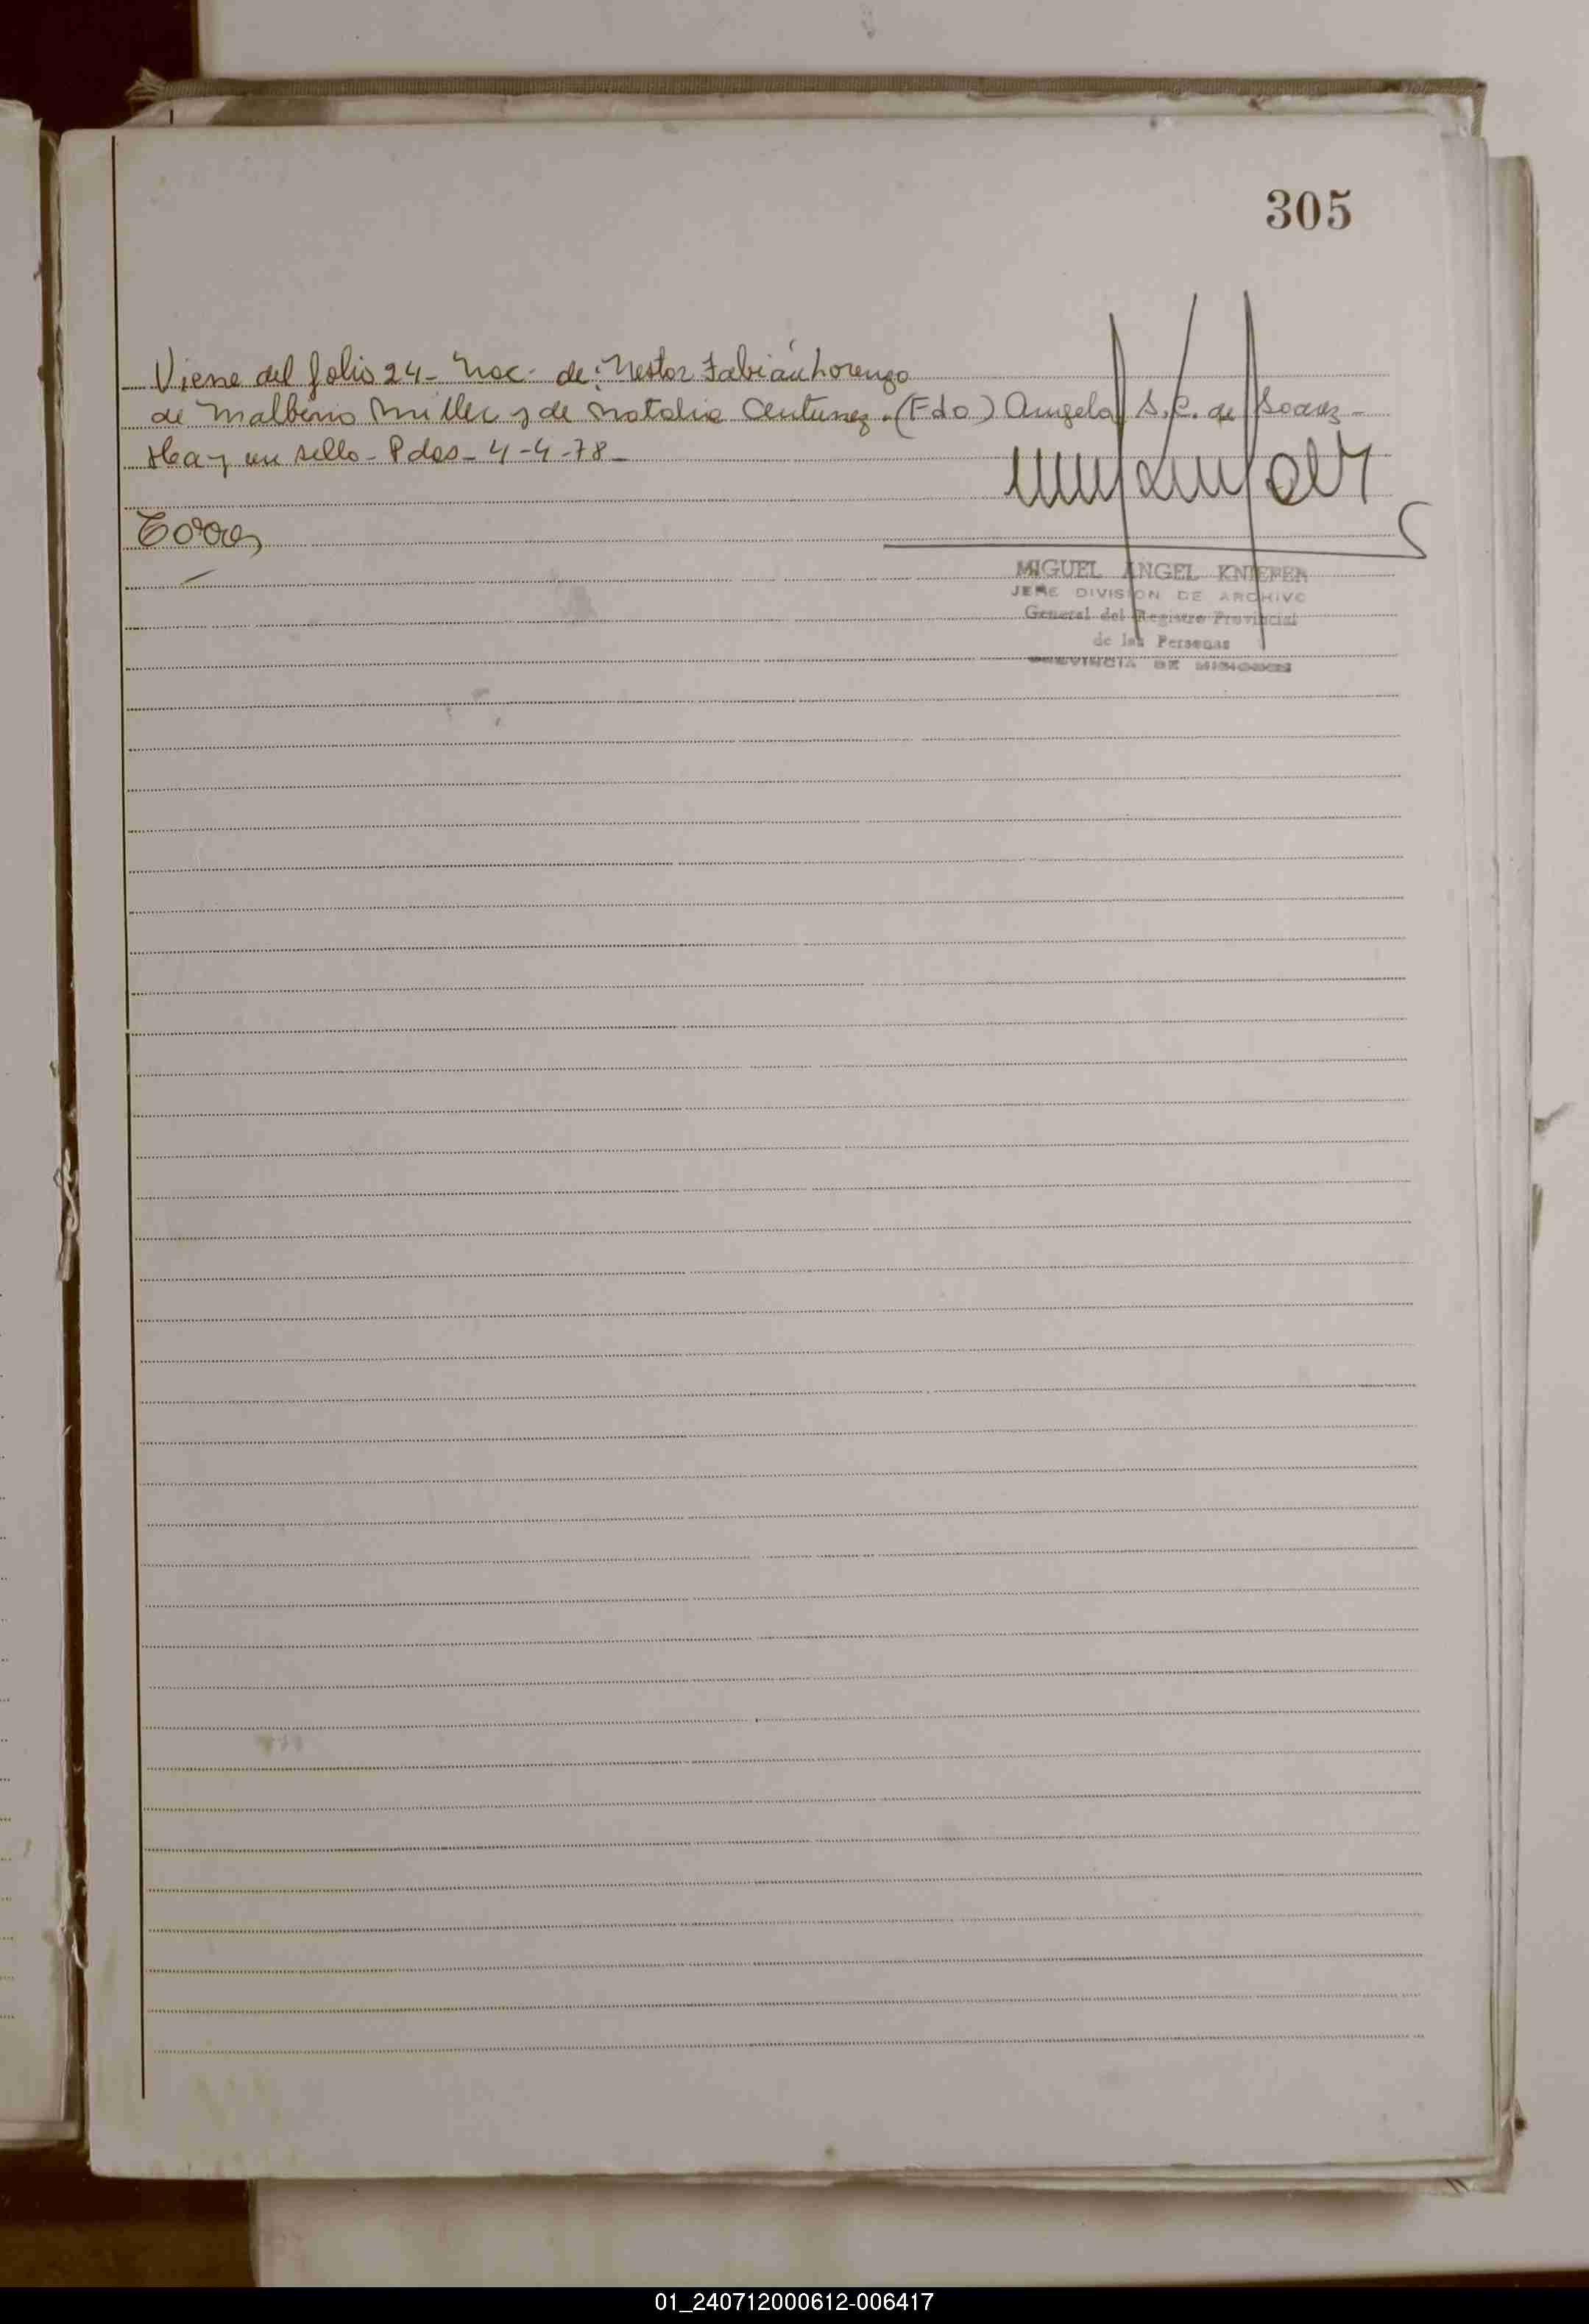 305
Viene del folio 24- Nac- de: Nestor Fabián Lorenzo
de Malberio Miller y de Natalia Antunez.(Fdo) Angela S.C. de Soarez-
Hay un sello- Pdas- 4-4-78-
Torres
MIGUEL ANGEL KNIEPER
JEFE DIVISION DE ARCHIVO
General del Registro Provincial
de las Personas
PROVINCIA DE MISIONES
01_240712000612-006417